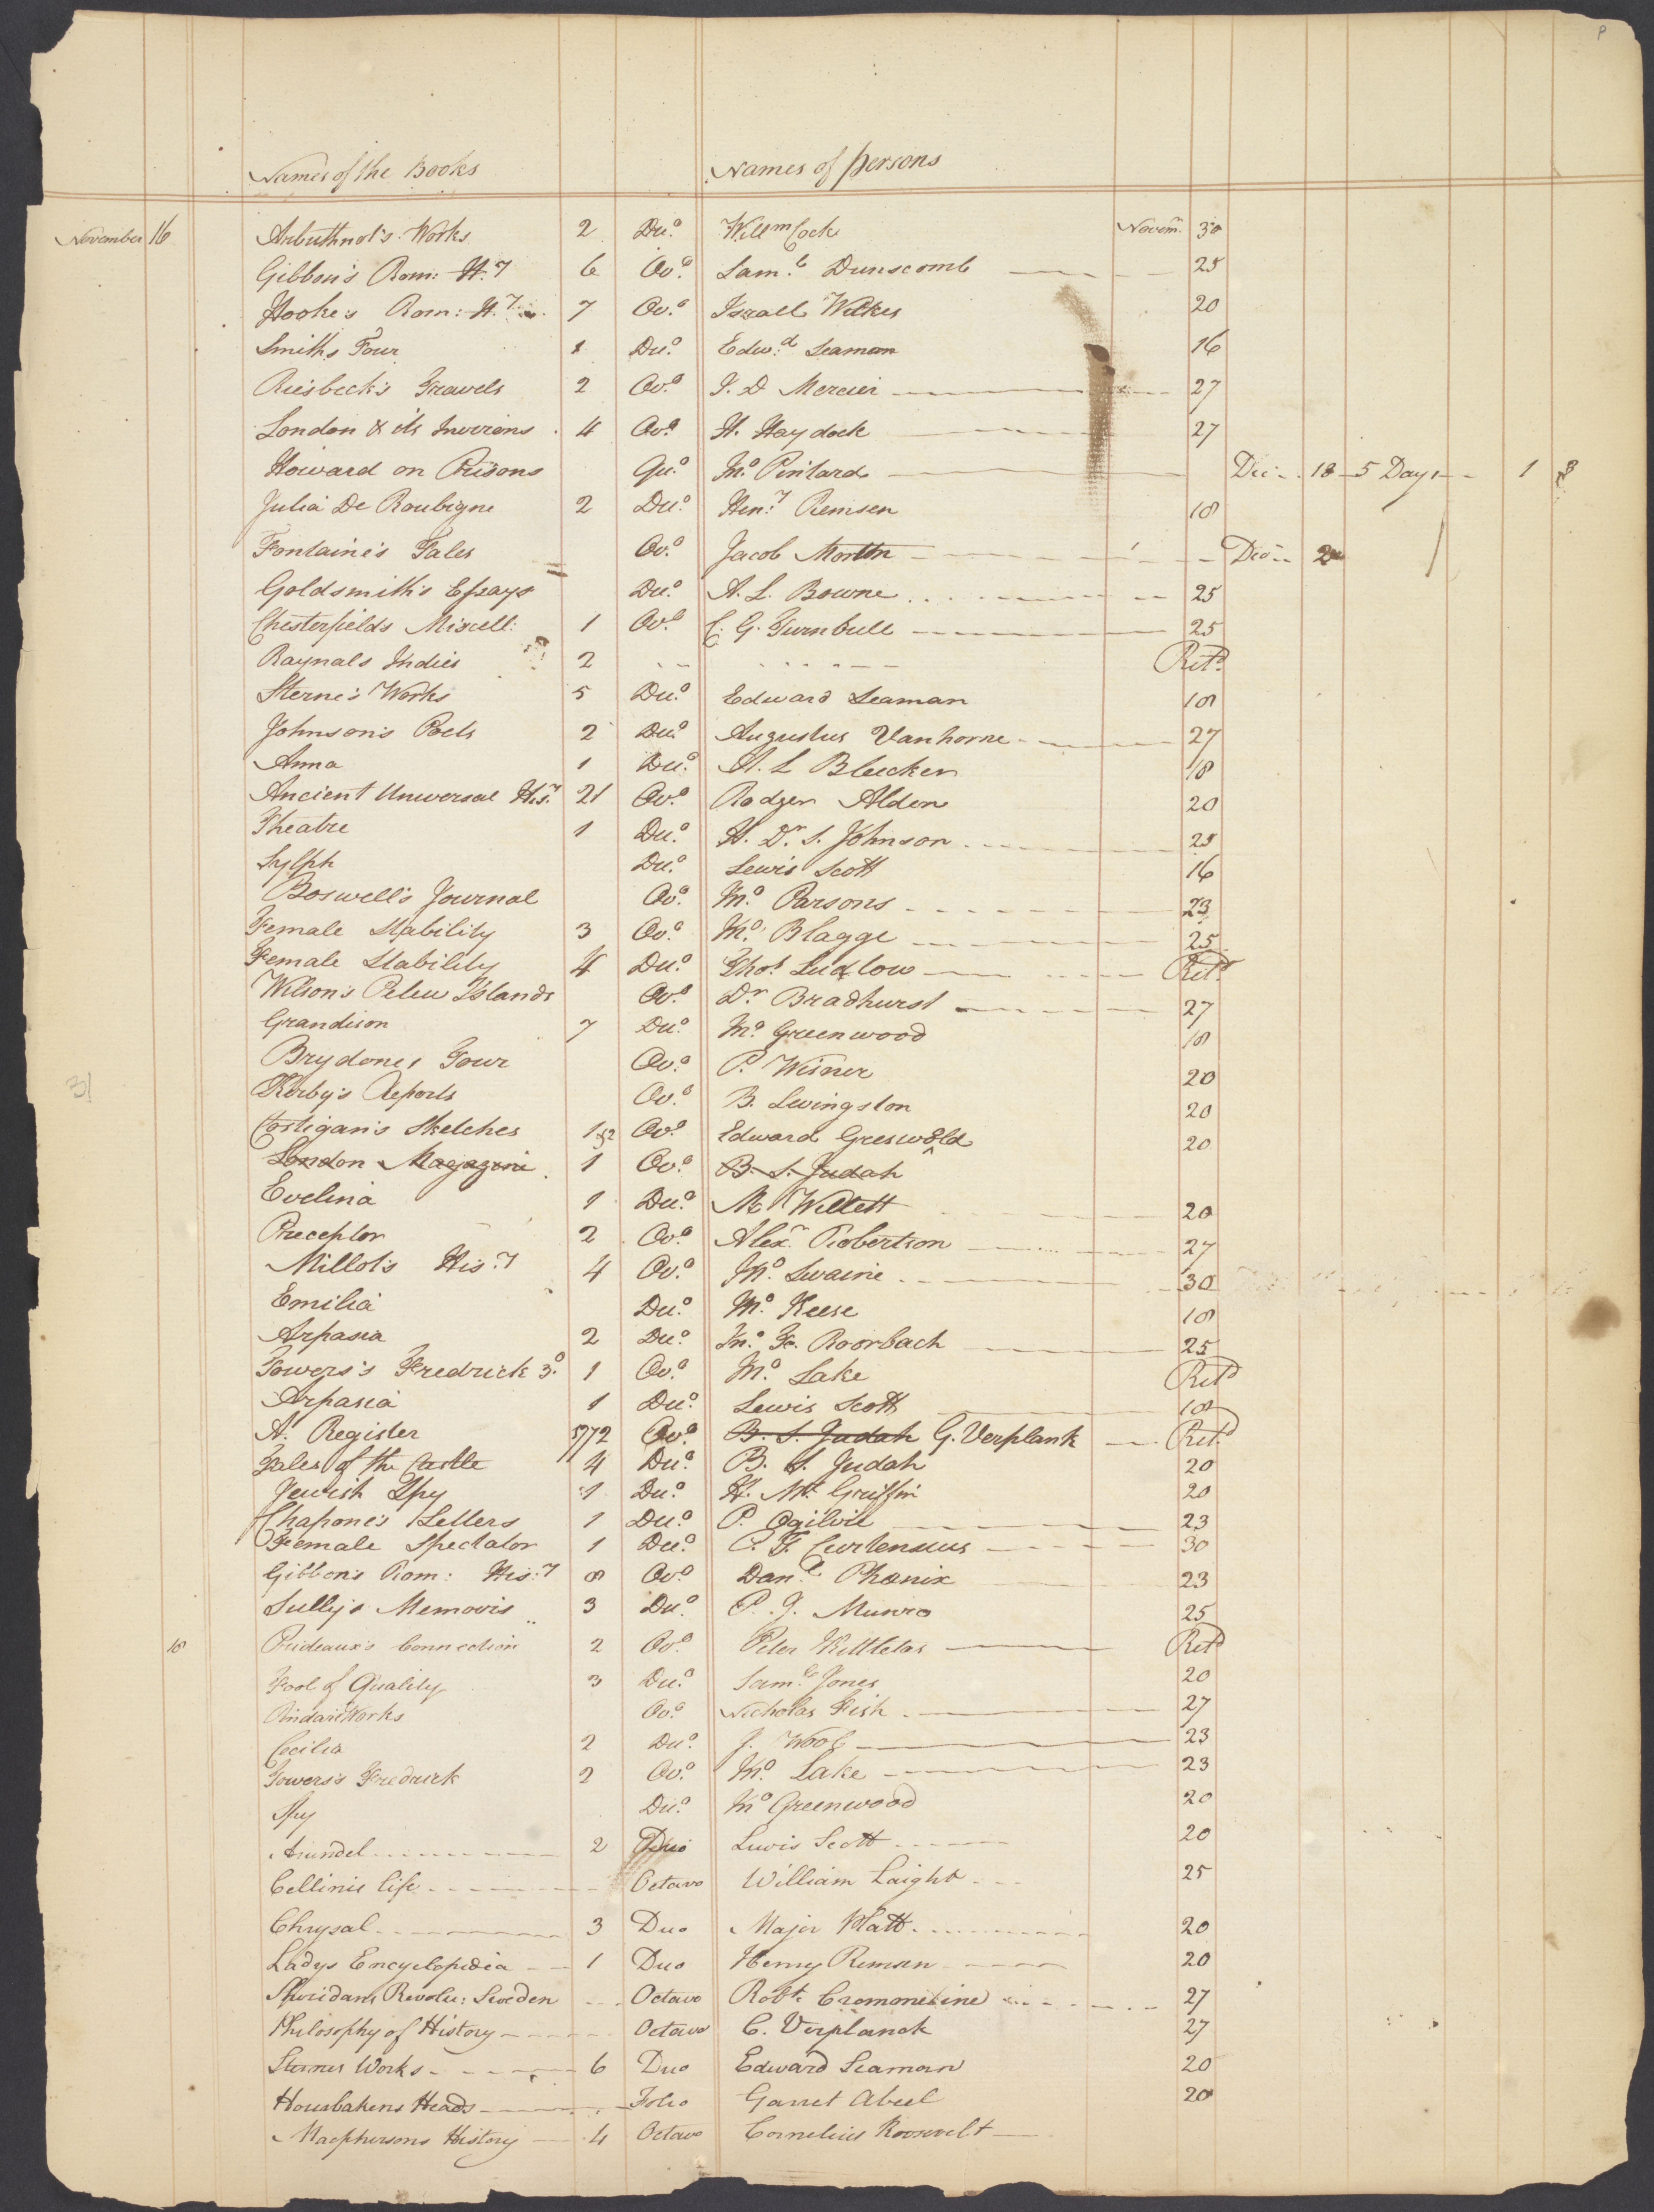 P
Names of the Books Names of persons
November 16 Arbuthnot's Works 2 Du.o Willm Cock Novem. 30
Gibbon's Rom: H.y 6 Ov.o Sam.l Dunscomb 25
Hooke's Rom: H.y 7 Ov.o Israell Wilkes 20
Smith's Tour 1 Du.o Edw.d Seaman 16
Riesbeck's Travels 2 Ov.o J. D Mercier 27
London & its Invirons 4 Ov.o H. Haydock 27
Howard on Prisons Qu.o Jn.o Pintard Dec 18 5 Days 1 8
Julia De Roubigne 2 Du.o Hen.y Remsen 18
Fontaine's Tales Ov.o Jacob Morton Dec
Goldsmith's Essays Du.o A. L. Bowne 25
Chesterfield's Miscell: 1 Ov.o C. G. Turnbull 25
Raynals Indies 2 Ret.d
Sterne's Works 5 Du.o Edward Seaman 18
Johnson's Poets 2 Du.o Augustus Vanhorne 27
Anna 1 Du.o A. L Bleecker 18
Ancient Universal His.y 21 Ov.o Rodger Alden 20
Theatre 1 Du.o H. Dr. S. Johnson 25
Sylph Du.o Lewis Scott 16
Boswell's Journal Ov.o Jn.o Parsons 23
Female Stability 3 Ov.o Jn.o Blagge 25
Female Stability 4 Du.o Thos. Ludlow Ret.d
Wilson's Pelew Islands Ov.o Dr Bradhurst 27
Grandison 7 Du.o Jn.o Greenwood 18
Brydones Tour Ov.o P. Wisner 20
Kerby's Reports Ov.o B. Levingston 20
Costigan's Sketches 1 & 2 Ov.o Edward Greswold 20
London Magazine 1 Ov.o B. S. Judah
Evelina 1 Du.o M Willett 20
Preceptor 2 Ov.o Alexr Robertson 27
Millot's His.y 4 Ov.o Jn.o Swaine 30
Emilia Du.o Jn.o Keese 18
Arpasia 2 Du.o Jn.o Fr. Roorbach 25
Towers's Fredrick 3.d 1 Ov.o Jn.o Lake Ret.d
Arpasia 1 Du.o Lewis Scott 18
A. Register 1772 Ov.o B. S. Judah G. Verplank Ret.d
Tales of the Castle 4 Du.o B. S. Judah 20
Jewish Spy 1 Du.o Griffin 20
Chapone's Letters 1 Du.o P. Ogilvie 23
Female Spectator 1 Du.o P. T. Curtenius 30
Gibbon's Rom: His:y 8 Ov.o Dan.l Phoenix 23
Sully's Memoirs 3 Du.o P. J. Munro 25
18 Prideaux's Connection 2 Ov.o Peter Kettletas Ret.d
Fool of Quality 3 Du.o Sam.l Jones 20
Pindar's Works Ov.o Nicholas Fish 27
Cecilia 2 Du.o J. Wool 23
Towers's Fredrick 2 Ov.o Jn.o Lake 23
Spy Du.o Jn.o Greenwood 20
Arundel 2 Duo Lewis Scott 20
Cellinis life Octavo William Laight 25
Chrysal 3 Duo Major Platt 20
Ladys Encyclopedia 1 Duo Henry Remsen 20
Sheridans Revolu: Sweden Octavo Robt. Crommeline 27
Philosophy of History Octavo C. Verplanck 27
Sternes Works 6 Duo Edward Seaman 20
Housbakens Heads Folio Garret Abeel 20
Macphersons History 4 Octavo Cornelius Roosevelt
31